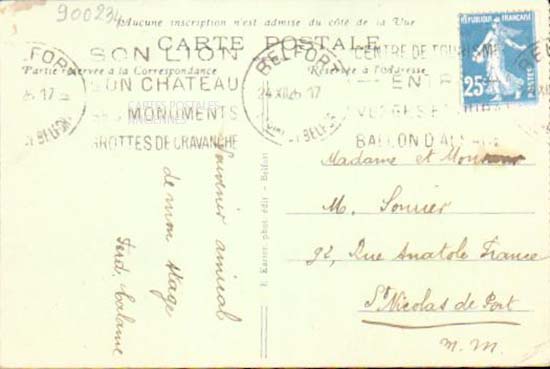 900234
Aucune inscription n'est admise du côté de la Vue
CARTE POSTALE
Partie réservée à la Correspondance
Réservée à l'Adresse
BELFORT
24 XII 25 17
BELFORT
SON LION
SON CHATEAU
SES MONUMENTS
GROTTES DE CRAVANCHE
CENTRE DE TOURISME
ENTRE
VOSGES ET JURA
BALLON D'ALSACE
RÉPUBLIQUE FRANÇAISE
25
POSTES
CARTES POSTALES
ANCIENNES
Souvenir amical
de mon stage
Ferd. Calame
phot. édit. - Belfort
Madame et Monsieur
M. Sonrier
92, Rue Anatole France
St Nicolas de Port
M. M.